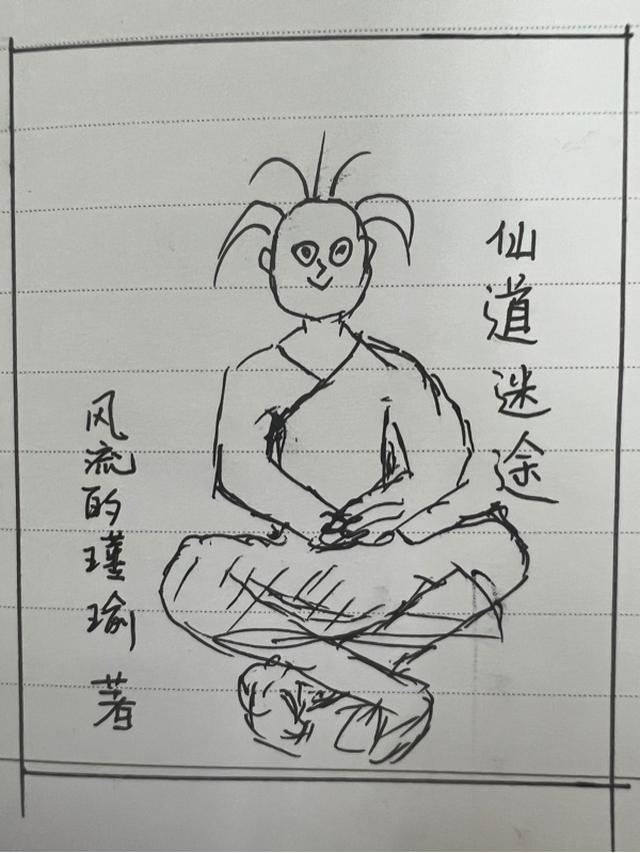 仙道迷途
风流的瑾瑜 著